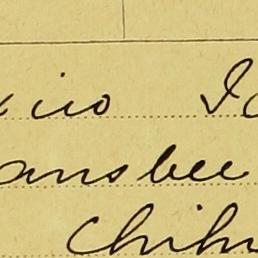 xico I
ansbee
Chihu